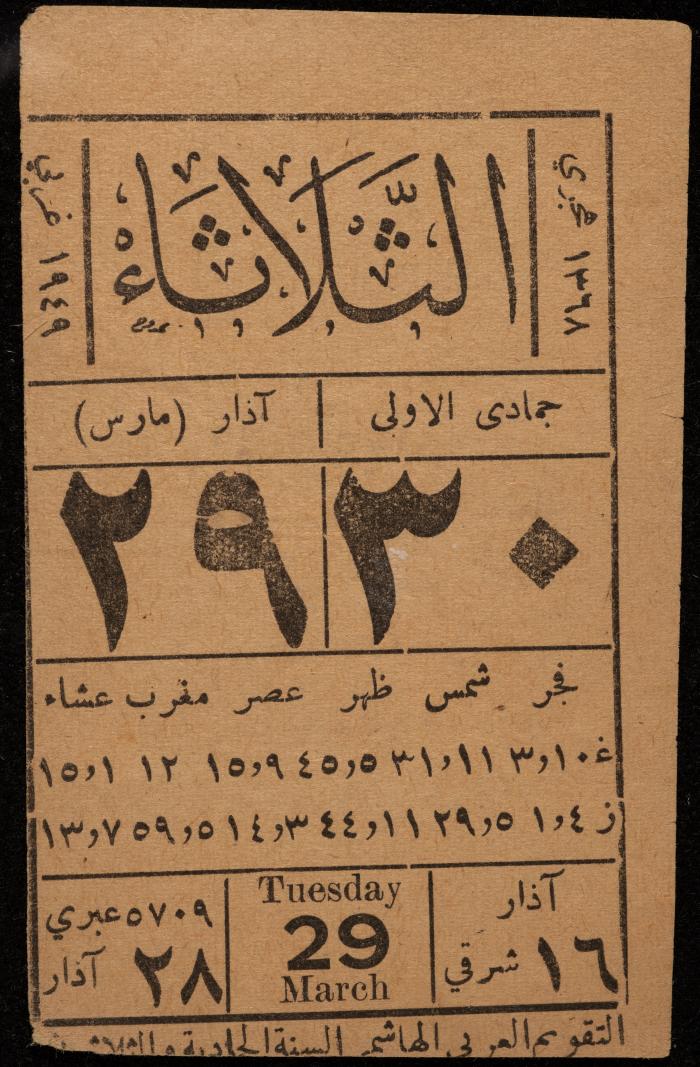 ١٣٦٨ هجري
الثُّلَاثَاءُ
١٩٤٩ غربي
جمادى الاولى
آذار (مارس)
٣٠
٢٩
فجر شمس ظهر عصر مغرب عشاء
غ ١٠و٣ ١١و٣١ ٥و٤٥ ٩و١٥ ١٢ ١و١٥
ز ٤و١ ٥و٢٩ ١١و٤٤ ٣و١٤ ٥و٥٩ ٧و١٣
آذار
١٦ شرقي
Tuesday
29
March
٥٧٠٩ عبري
٢٨ آذار
التقويم العربي الهاشمي السنة الحادية